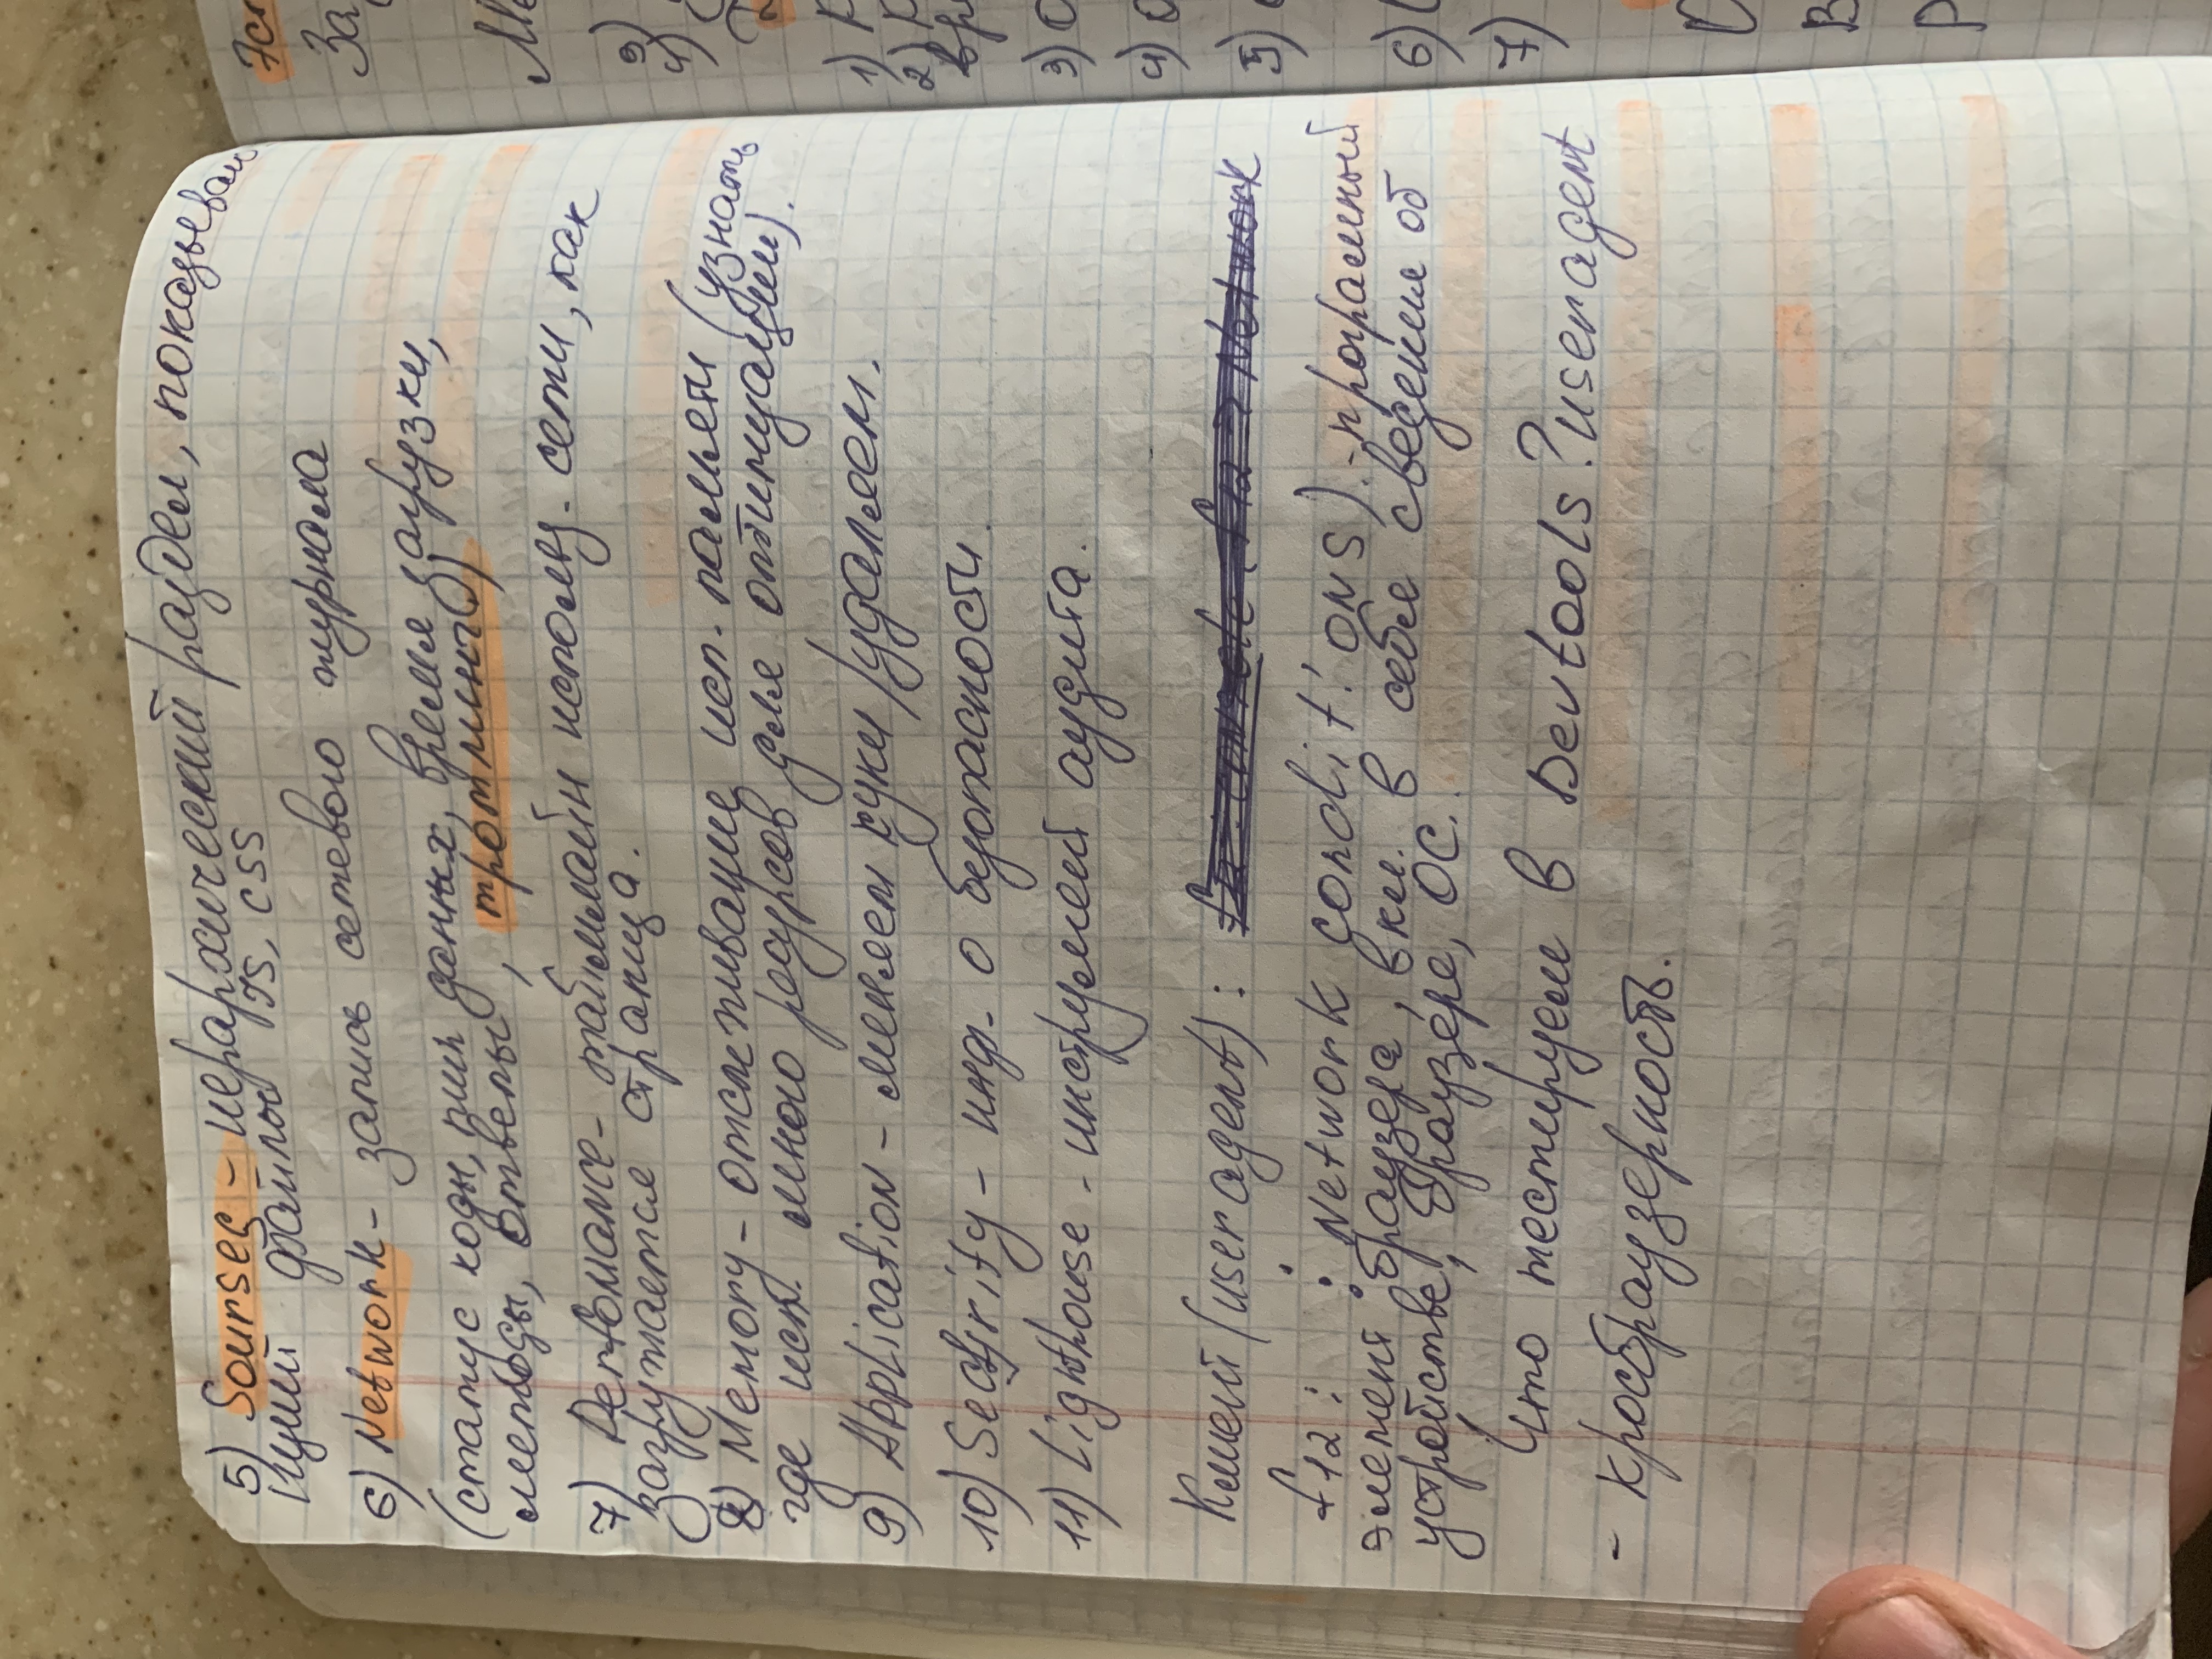 5) Sourses - иерархический раздел, показываю
щий файлы JS, CSS
6) Network - запись сетевого журнала
(статус коды, тип данных, время загрузки,
методы, ответы, тротлинг)
7) Perfomance - таймлайн использ. сети, как
загружается страница.
8) Memory - отслеживание исп. памяти (узнать
где исп. много ресурсов для оптимизации).
9) Application - меняем куки /удаляем.
10) Security - инф. о безопасности.
11) Lighthouse - инструмент аудита.
Клиент (user agent): f12: console f12 → Network
f12: ⋮ Network conditions). - програмный
элемент браузера, вкл. в себя сведения об
устройстве, браузере, ОС.
Что тестируем в Devtools? user agent
- кросбраузерность.
7ст
За
Ме
3)
4)
1)
2)
вре
3) О
4) О
5)
6)
7)
О
В
Р